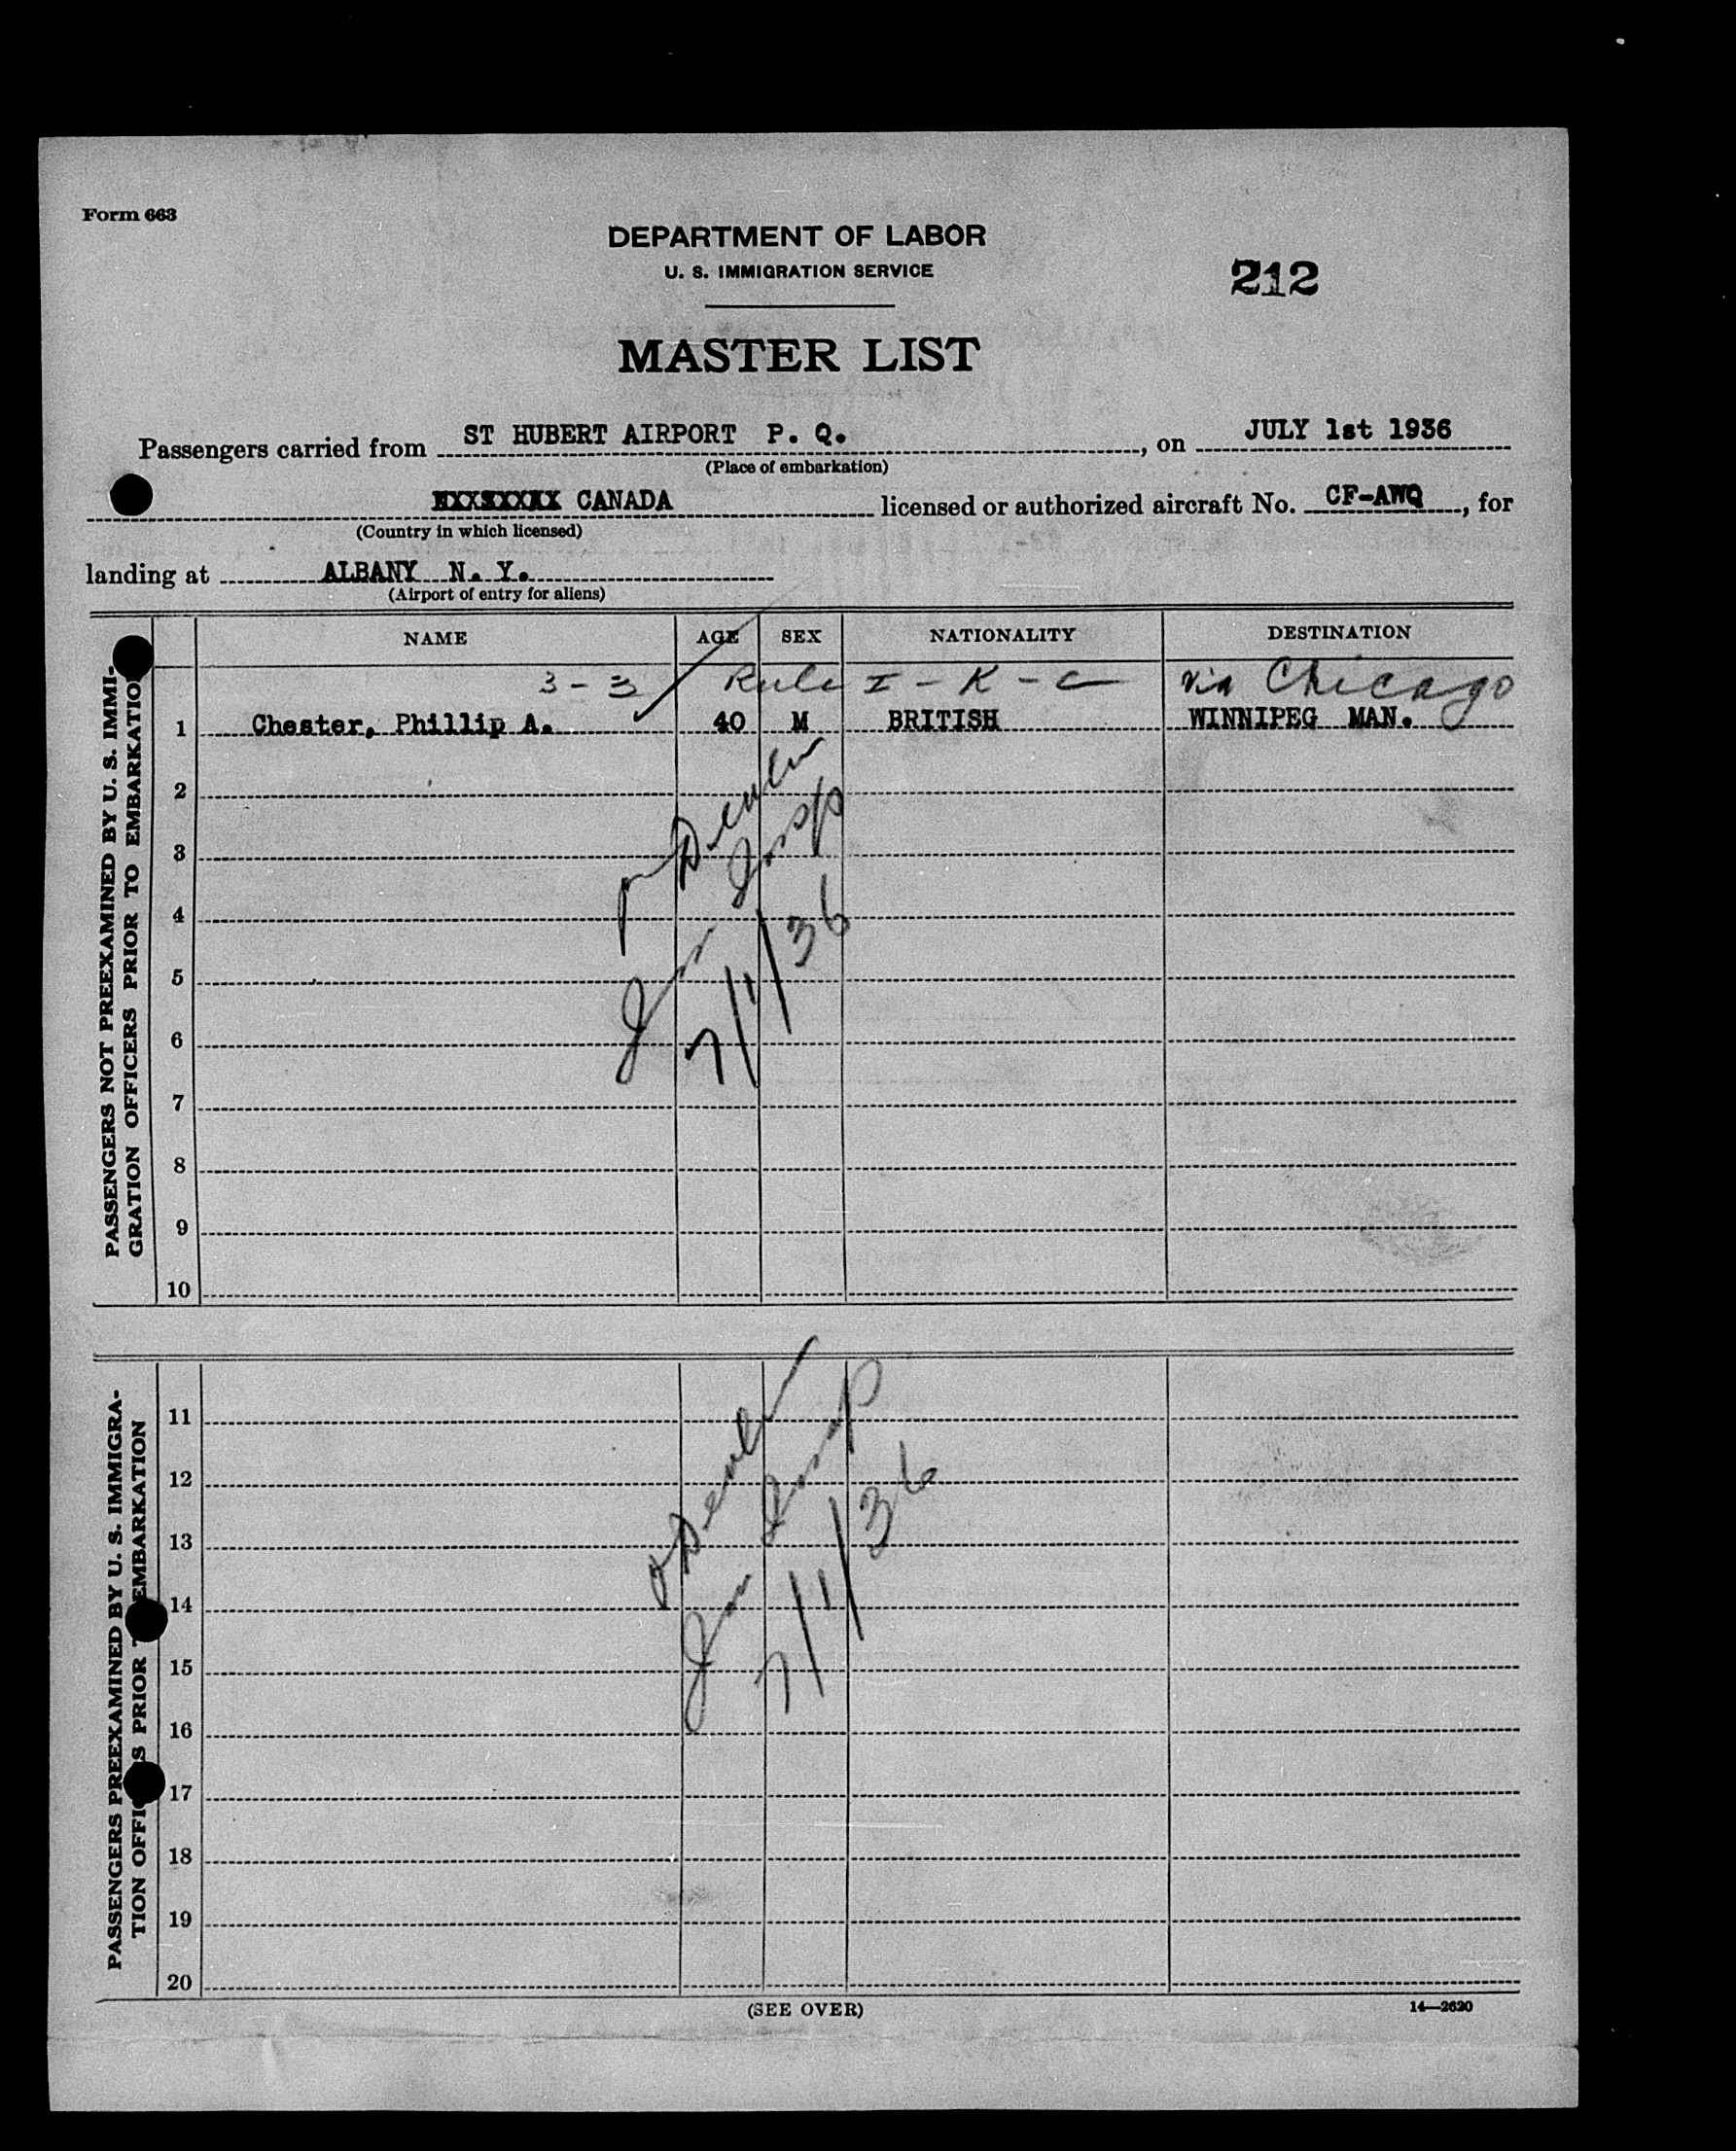 Form 663
DEPARTMENT OF LABOR
U. S. IMMIGRATION SERVICE
212
MASTER LIST
Passengers carried from ST HUBERT AIRPORT P. Q., on JULY 1st 1936
(Place of embarkation)
CANADA licensed or authorized aircraft No. CF-AWQ, for
(Country in which licensed)
landing at ALBANY N. Y.
(Airport of entry for aliens)
PASSENGERS NOT PREEXAMINED BY U. S. IMMI-
GRATION OFFICERS PRIOR TO EMBARKATIO
NAME AGE SEX NATIONALITY DESTINATION
3-3 Rule I-K-C via Chicago
1 Chester, Phillip A. 40 M BRITISH WINNIPEG MAN.
2
3
4
5
6
7
8
9
10
7/1/36
PASSENGERS PREEXAMINED BY U. S. IMMIGRA-
TION OFFIC S PRIOR T EMBARKATION
11
12
13
14
15
16
17
18
19
20
7/1/36
(SEE OVER)
14—2620